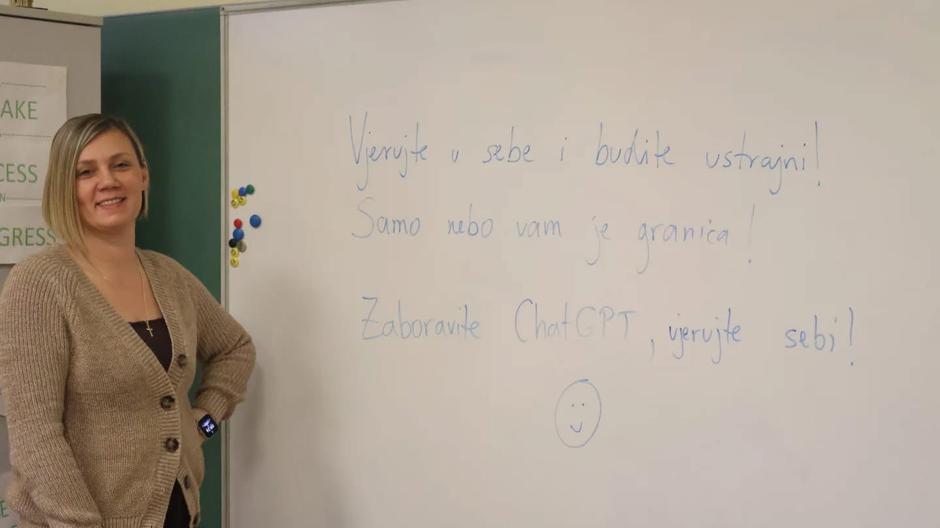 AKE
CESS
N
GRESS
Vjerujte u sebe i budite ustrajni!
Samo nebo vam je granica!
Zaboravite ChatGPT, vjerujte sebi!